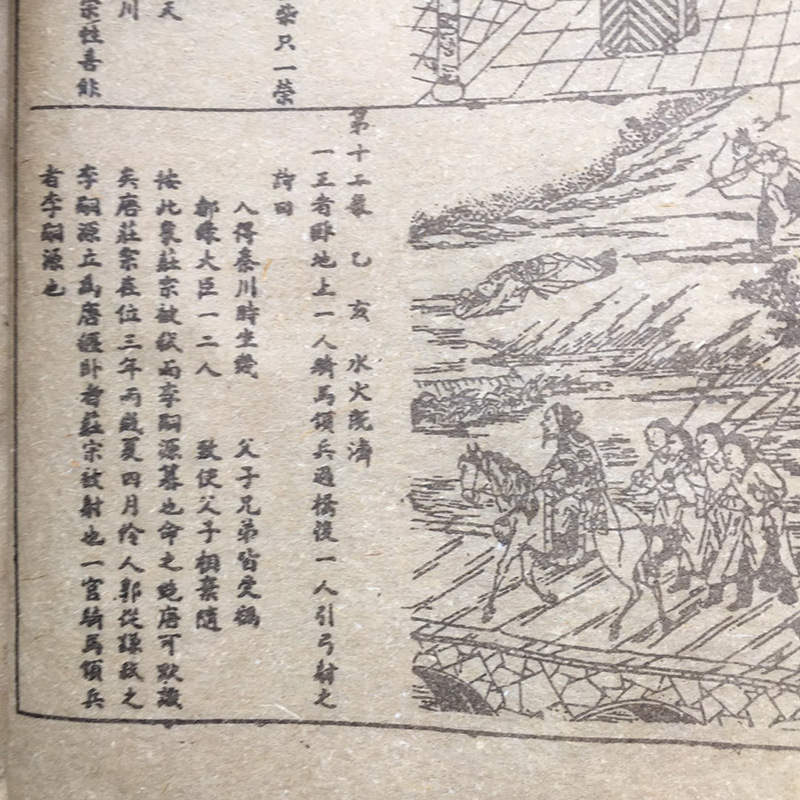 柴只一榮
天
川
宗性善能
第十二象 乙 亥 水火既濟
一王者卧地上一人騎馬領兵過橋後一人引弓射之
詩曰
人得秦川時生幾 父子兄弟皆受禍
都緣大臣一二人 致使父子相棄隨
按此象莊宗被弒而李嗣源篡也命之晚唐可默識
矣唐莊宗在位三年丙戌夏四月伶人郭從謙弒之
李嗣源立為唐繼卧者莊宗被射也一官騎馬領兵
者李嗣源也